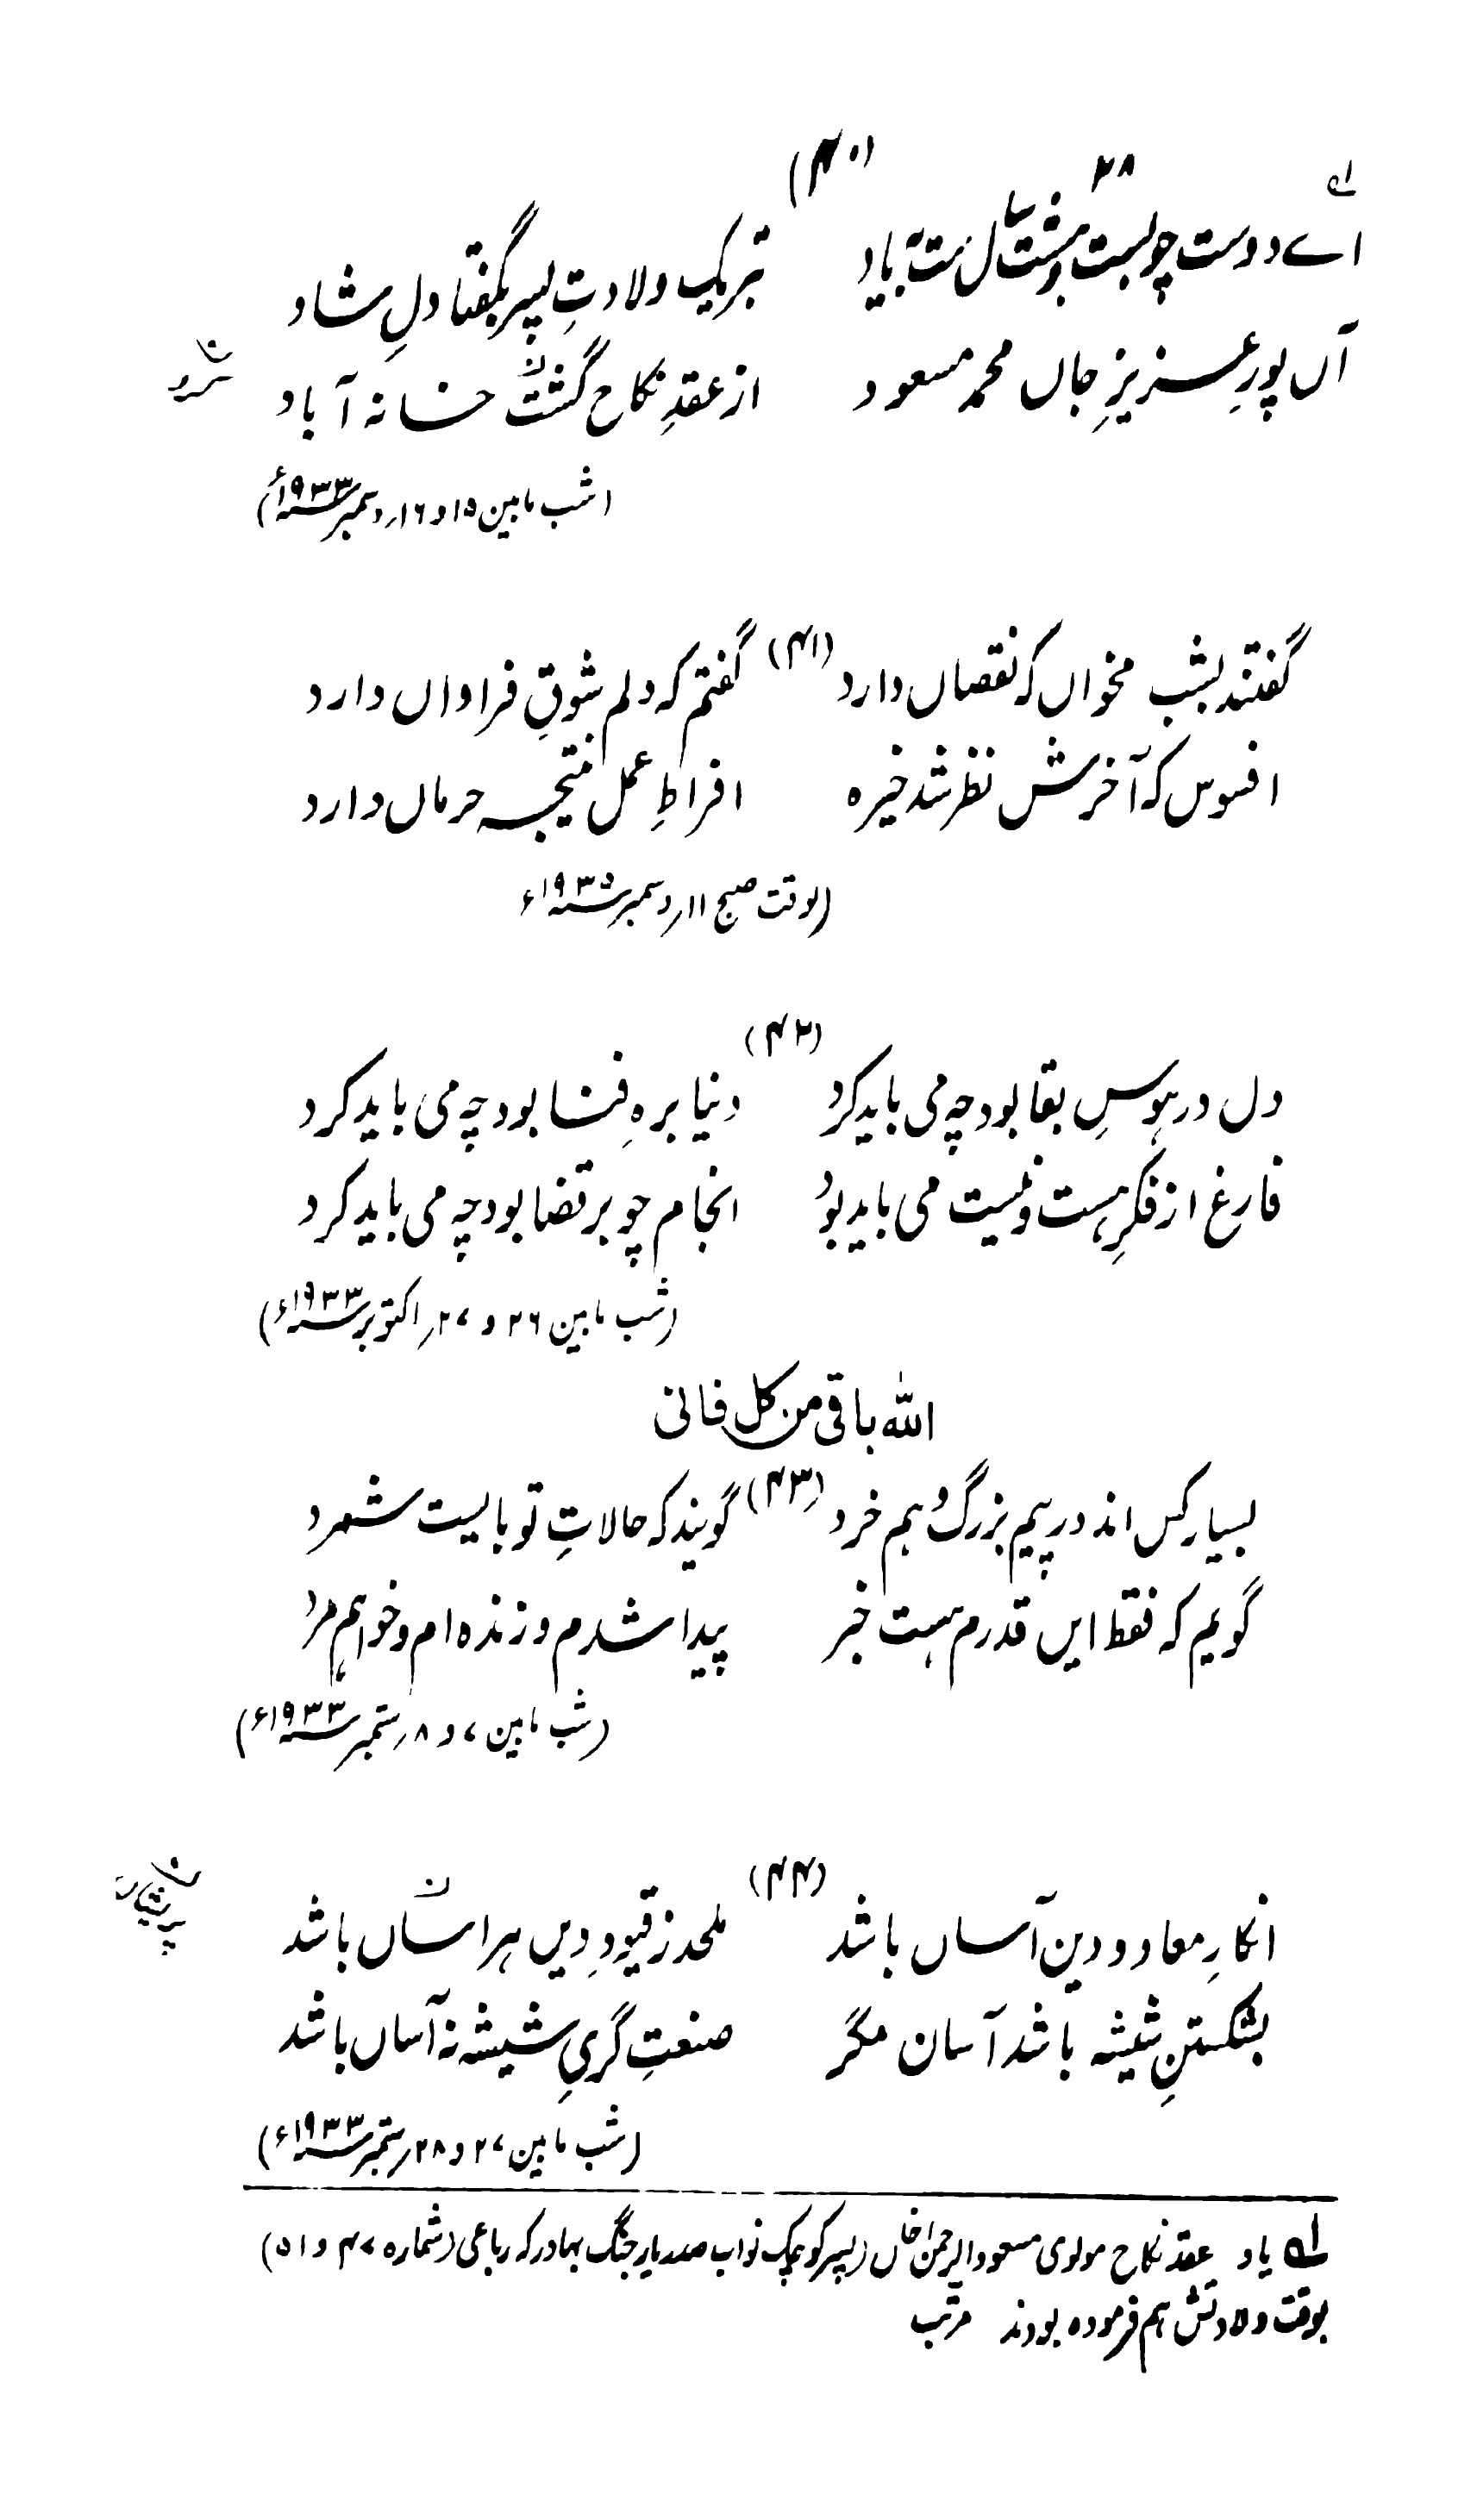 (۴۰)
اے دوست چو بست و ہشت سالت باد تبریک ولادتِ پسر گفتا دلِ شاد
آں پورِ عزیزِ جاں محمد مسعود از عقدِ نکاح گشت خانہ آباد
(شب مابین ۱۵ و ۱۶ر دسمبر ۱۹۳۳ء)
(۴۱)
گفتند بشب مخواں کہ نقصاں دارد گفتم کہ دلم شوقِ فراواں دارد
افسوس کہ آخرش نظر شد خیرہ افراطِ عمل نتیجہ حرماں دارد
(بوقت صبح ۱۱ر دسمبر
(۴۲)
دل در ہوسِ بقا بود چہ می باید کرد دنیا برہِ فنا بود چہ می باید کرد
فارغ از فکرِ ہست و نیست می باید بود انجام چو بر قضا بود چہ می باید کرد
(شب مابین ۲۶ و ۲۷ر اکتوبر ۱۹۳۳ء)
اللہ باقی من کل فانی
(۴۳)
بسیار کس اند در پیم بزرگ و ہم خرد گویند کہ حالاتِ تو بایست شمرد
گویم کہ فقط ایں قدرم ہست خبر پیدا شدم و زندہ ام و خواہم مرد
(شب مابین ۷ و ۸ر ستمبر ۱۹۳۳ء)
(۴۴)
انکارِ معاد و دین آساں باشد ملحد ز قیودِ دیں ہراساں باشد
بشکستنِ شیشہ باشد آسان مگر صنعتِ گریِ شیشہ نہ آساں باشد
(شب مابین ۲۷ و ۲۸ر ستمبر ۱۹۳۳ء)
لہ یاد عقد نکاح مولوی مسعود الرحمٰن خاں (پسر کوچک نواب صدر یار جنگ بہادر کہ رباعی (شمارہ ۴۷ و ۵۱)
بوقت ولادتش ہم فرمودہ بودند مرتب